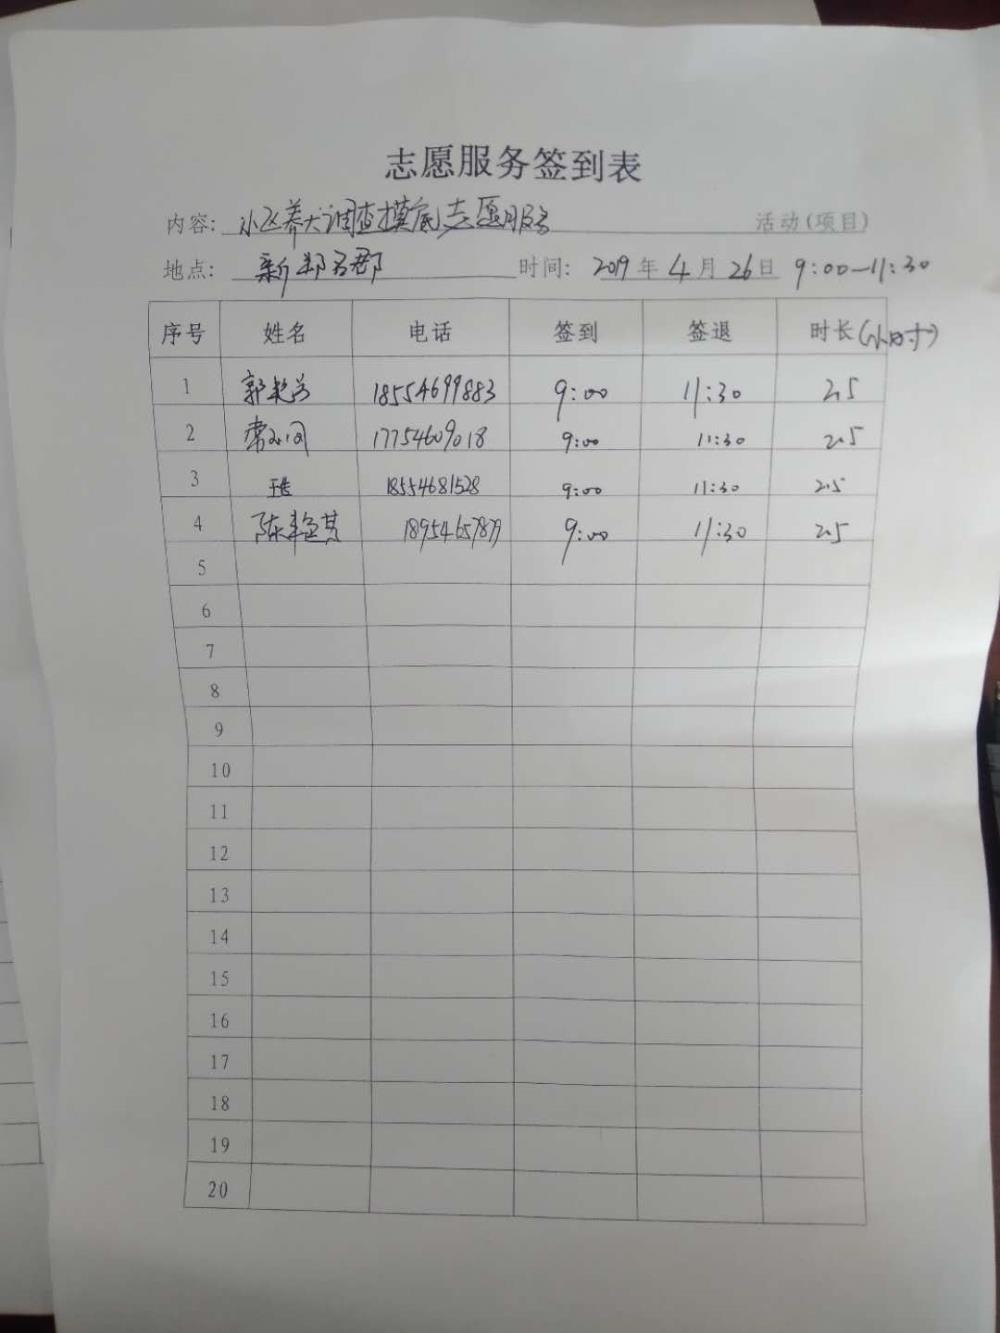 志愿服务签到表
内容: 小区养犬调查摸底志愿服务 活动(项目)
地点: 新郑名郡 时间: 2019 年 4 月 26 日 9:00—11:30
序号 姓名 电话 签到 签退 时长(小时)
1 郭艳芳 18554699883 9:00 11:30 2.5
2 常小闵 17754609018 9:00 11:30 2.5
3 18554681528 9:00 11:30 2.5
4 陈艳其 18954657879 9:00 11:30 2.5
5
6
7
8
9
10
11
12
13
14
15
16
17
18
19
20